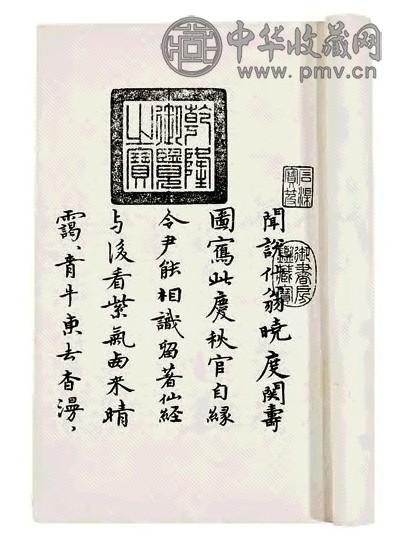 中华收藏网
www.pmv.cn
乾隆
御覽
之寶
石渠
寶笈
御書房
鑑藏寶
聞說仙翁曉度関壽
圖寫此慶秋官自緣
令尹能相識留著仙經
与後看紫氣西来晴
靄、青牛東去杳漫、